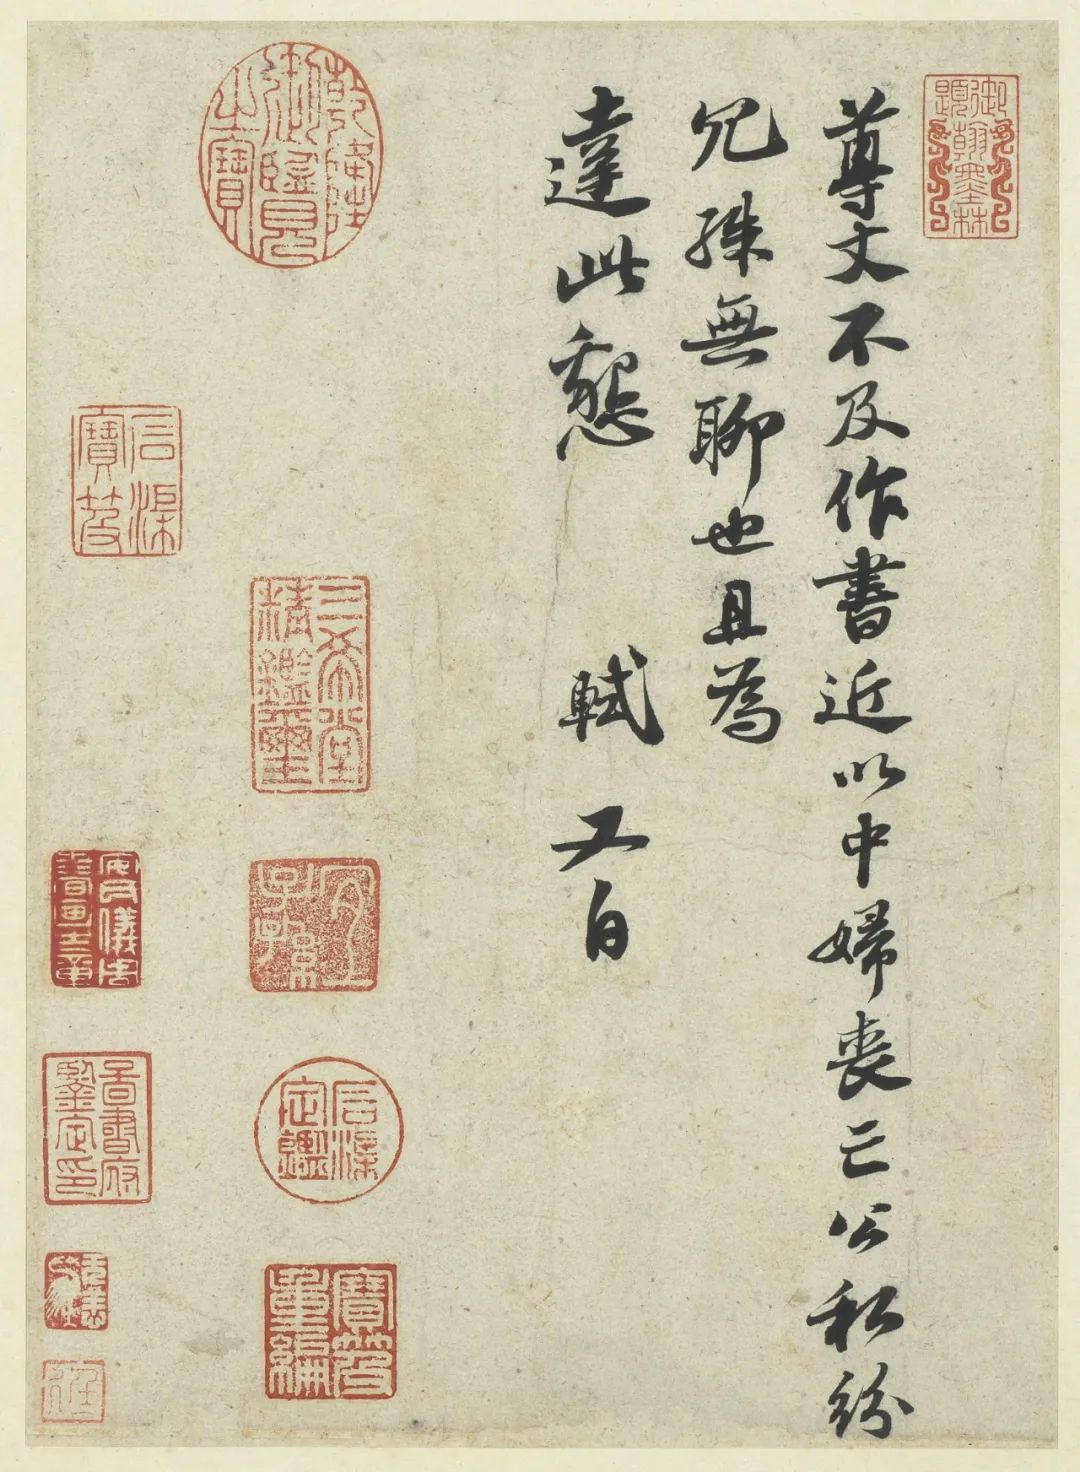 御題翰墨林
尊丈不及作書近以中婦喪亡公私紛
冗殊無聊也且為
達此懇 軾又白
乾隆御覽之寶
三希堂精鑑璽
宜子孫
石渠定鑑
寶笈重編
石渠寶笈
安儀周書畫之章